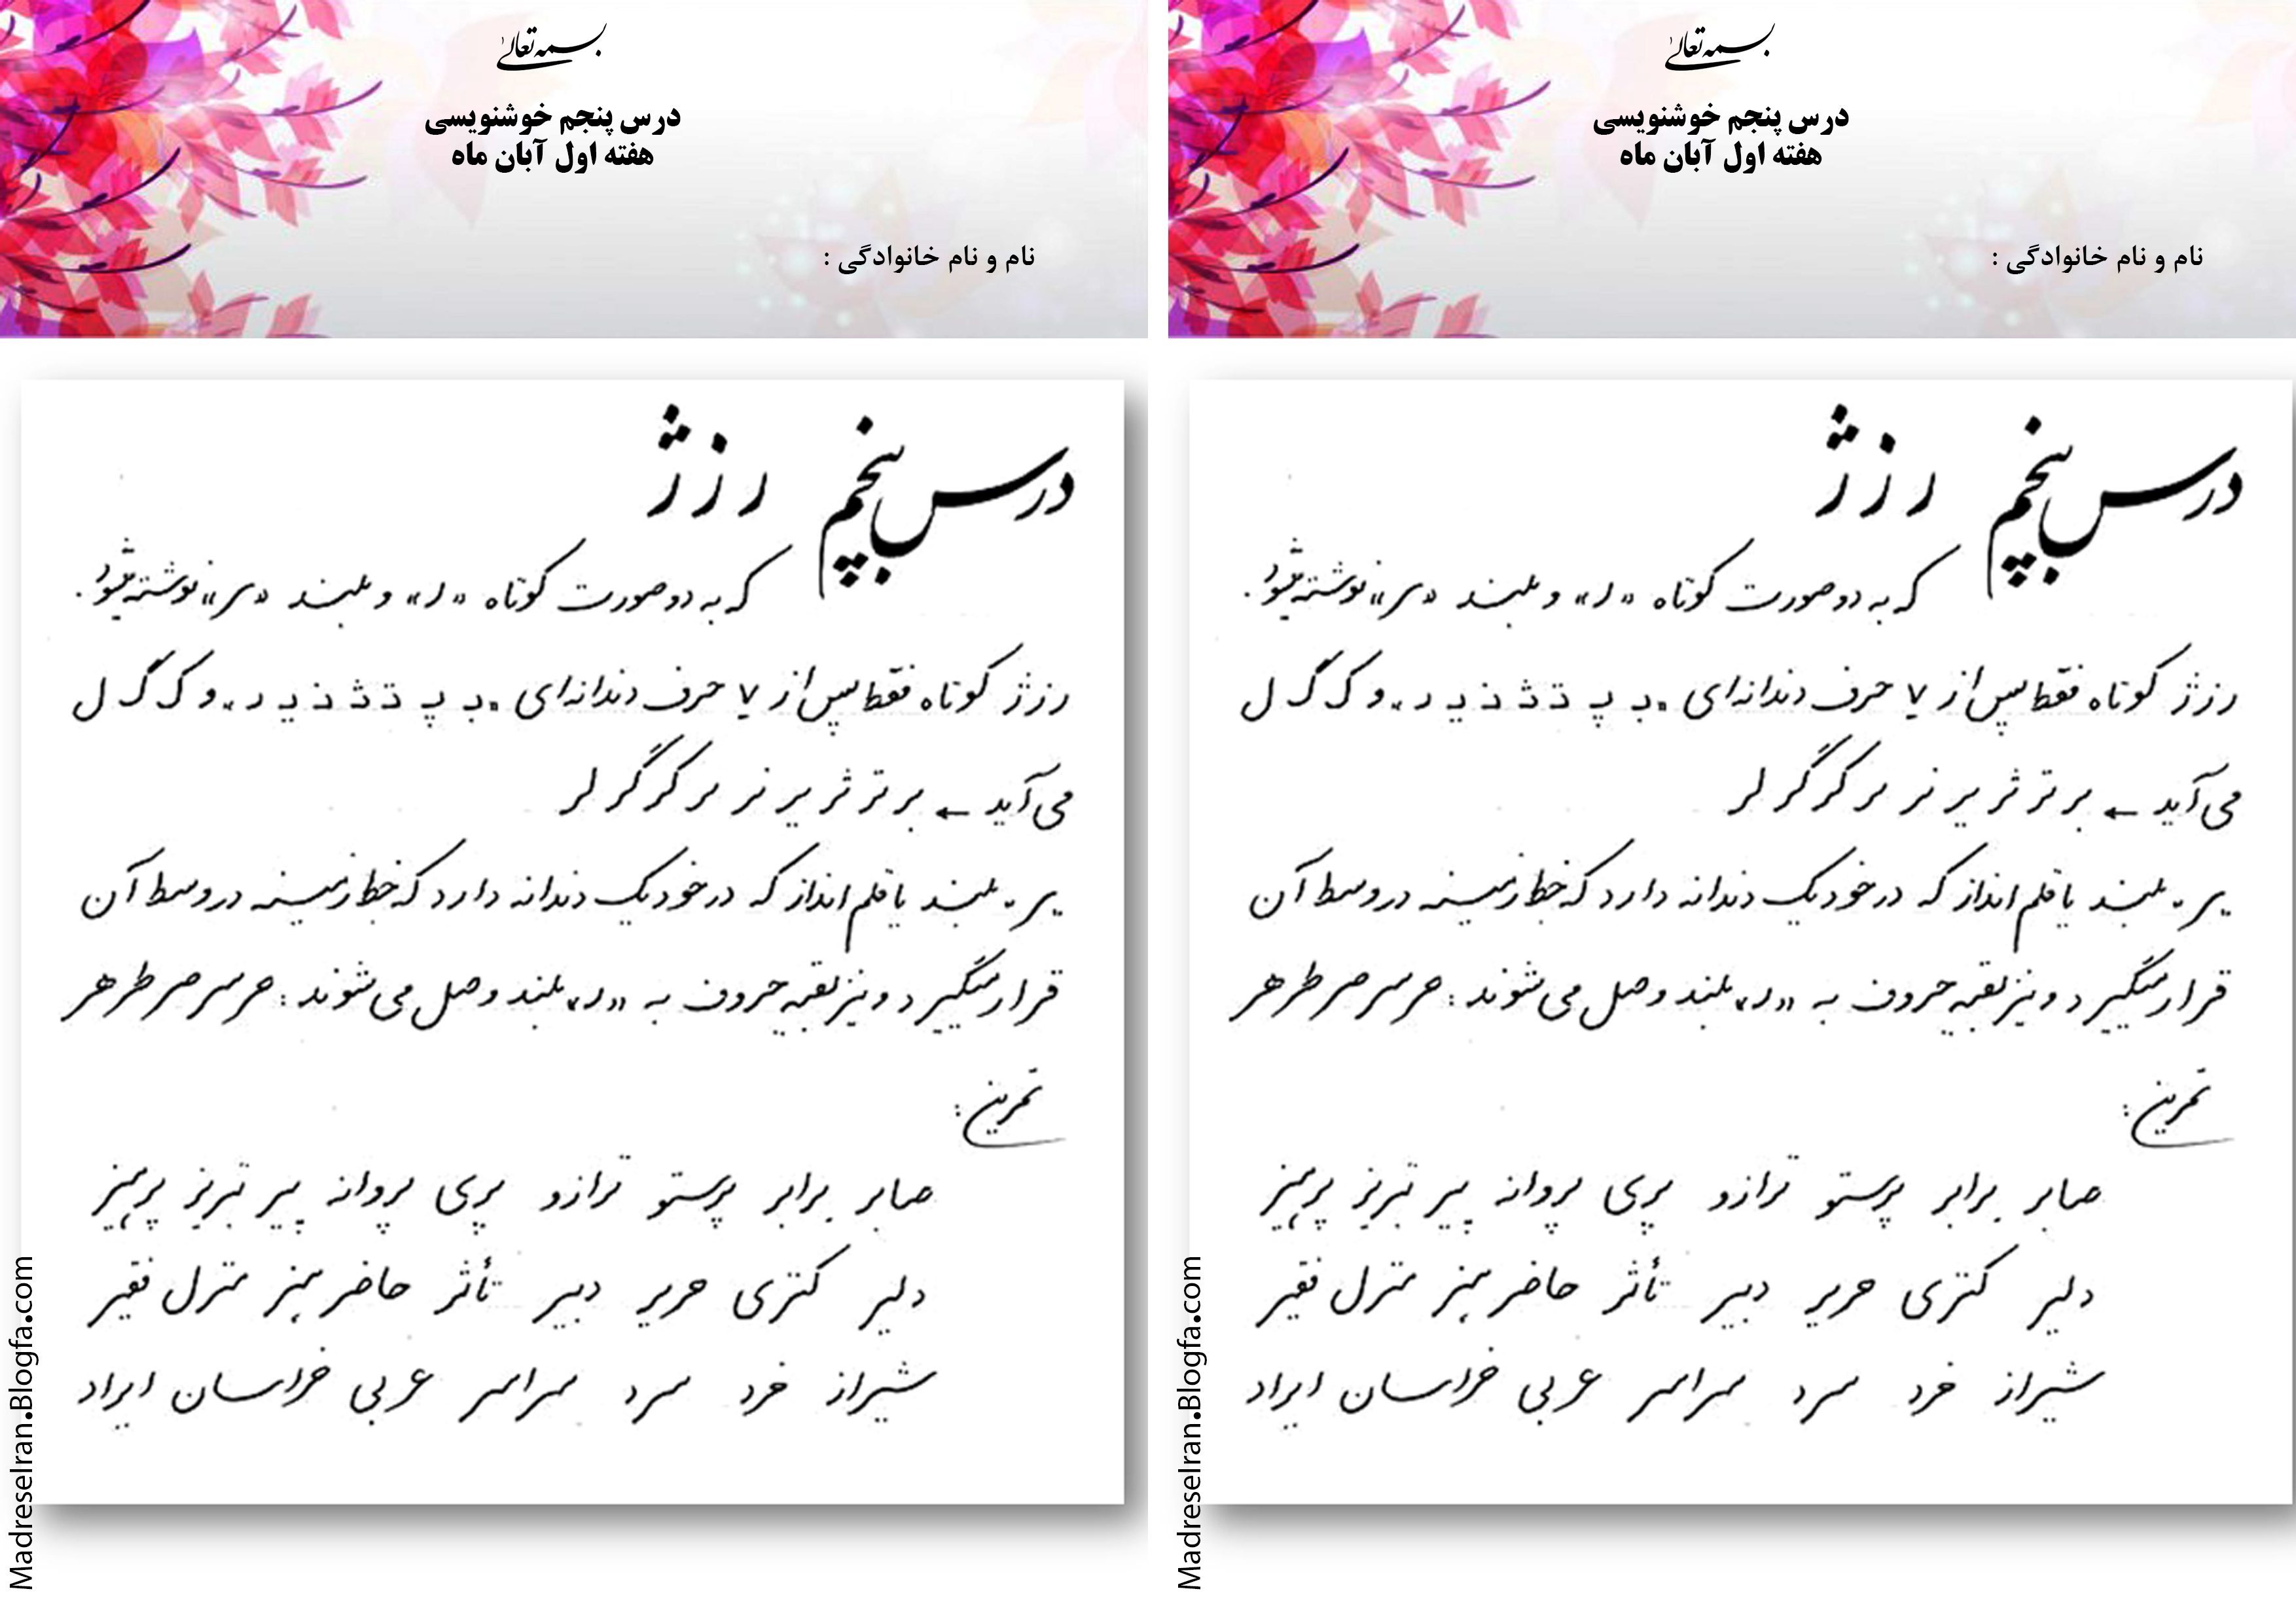 بسمه تعالی
درس پنجم خوشنویسی
هفته اول آبان ماه
نام و نام خانوادگی :
درس پنجم ر ز ژ
که به دو صورت کوتاه «ر» و بلند «ـر» نوشته می‌شود.
ر ز ژ کوتاه فقط پس از ۷ حرف دندانه‌ای «بـ پـ تـ ثـ نـ یـ ـد» و ک گ ل
می‌آید ← بر تر ثر یر نر مر کر گر لر
«ـر» بلند یا قلم‌انداز که در خود یک دندانه دارد که خط زمینه در وسط آن
قرار میگیرد و نیز بقیه حروف به «ر» بلند وصل می‌شوند : حر سر صر طر هر
تمرین :
صابر برابر پرستو ترازو پری پروانه پیر تبریز پرهیز
دلیر کنتری حریر دبیر تأثر حاضر هنر منزل فقیر
شیراز خرد سرد سراسر عربی خراسان ایراد
MadreseIran.Blogfa.com
بسمه تعالی
درس پنجم خوشنویسی
هفته اول آبان ماه
نام و نام خانوادگی :
درس پنجم ر ز ژ
که به دو صورت کوتاه «ر» و بلند «ـر» نوشته می‌شود.
ر ز ژ کوتاه فقط پس از ۷ حرف دندانه‌ای «بـ پـ تـ ثـ نـ یـ ـد» و ک گ ل
می‌آید ← بر تر ثر یر نر مر کر گر لر
«ـر» بلند یا قلم‌انداز که در خود یک دندانه دارد که خط زمینه در وسط آن
قرار میگیرد و نیز بقیه حروف به «ر» بلند وصل می‌شوند : حر سر صر طر هر
تمرین :
صابر برابر پرستو ترازو پری پروانه پیر تبریز پرهیز
دلیر کنتری حریر دبیر تأثر حاضر هنر منزل فقیر
شیراز خرد سرد سراسر عربی خراسان ایراد
MadreseIran.Blogfa.com